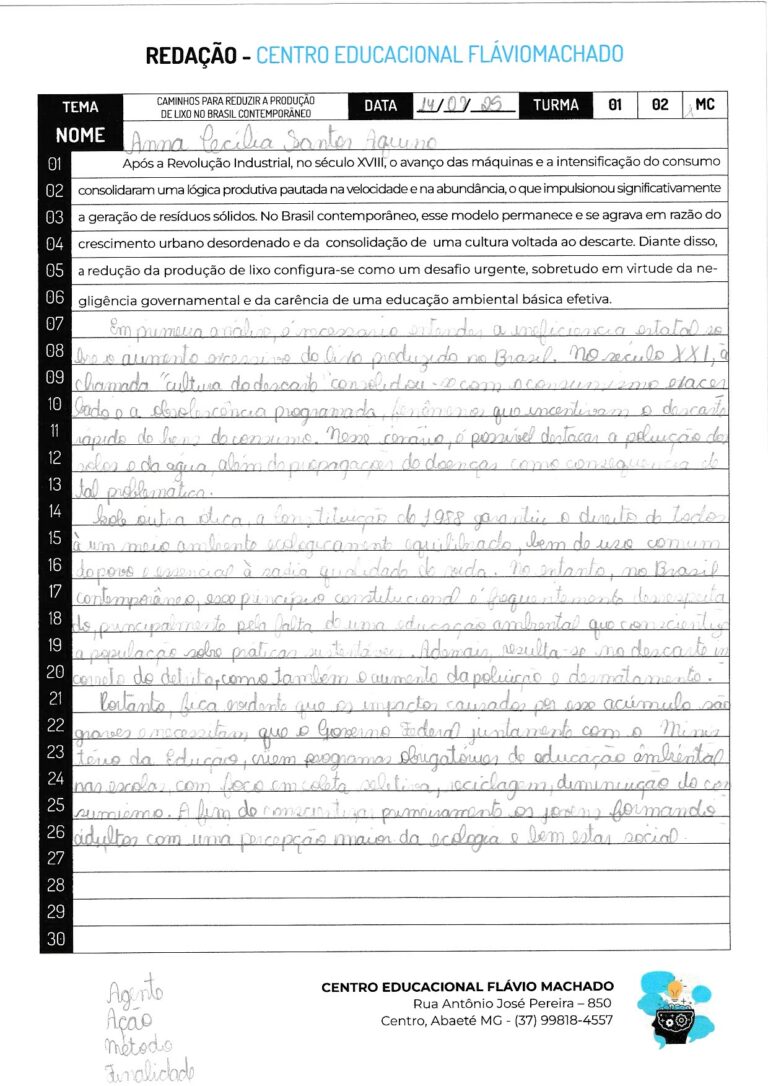 REDAÇÃO - CENTRO EDUCACIONAL FLÁVIOMACHADO
TEMA
CAMINHOS PARA REDUZIR A PRODUÇÃO
DE LIXO NO BRASIL CONTEMPORÂNEO
DATA 14/09/25 TURMA 01 02 MC
NOME Anna Cecília Santos Aquino
01 Após a Revolução Industrial, no século XVIII, o avanço das máquinas e a intensificação do consumo
02 consolidaram uma lógica produtiva pautada na velocidade e na abundância, o que impulsionou significativamente
03 a geração de resíduos sólidos. No Brasil contemporâneo, esse modelo permanece e se agrava em razão do
04 crescimento urbano desordenado e da consolidação de uma cultura voltada ao descarte. Diante disso,
05 a redução da produção de lixo configura-se como um desafio urgente, sobretudo em virtude da ne-
06 gligência governamental e da carência de uma educação ambiental básica efetiva.
07 Em primeira análise, é necessário entender a ineficiência estatal so
08 bre o aumento excessivo do lixo produzido no Brasil. No século XXI, a
09 chamada "cultura do descarte" consolidou-se com o consumismo exacer
10 bado e a obsolescência programada, fenômenos que incentivam o descarte
11 rápido de bens de consumo. Nesse cenário, é possível destacar a poluição dos
12 solos e da água, além da propagações de doenças como consequência de
13 tal problemática.
14 Sobe outra ótica, a Constituição de 1988 garantiu o direito de todos
15 à um meio ambiente ecologicament equilibrado, bem de uso comum
16 do povo e essencial à sadia qualidade de vida. No entanto, no Brasil
17 contemporâneo, esse princípio constitucional é frequentemente desrespeita
18 do, principalmente pela falta de uma educação ambiental que conscientize
19 a população sobre práticas sustentáveis. Ademais, resulta-se no descarte in
20 correto do detrito, como também o aumento da poluição e desmatamento.
21 Portanto, fica evidente que os impactos causados por esse acúmulo são
22 graves e necessitam, que o Governo Federal juntamente com o Minis
23 tério da Edução, criem programas obrigatórios de educação ambiental
24 nas escolas, com foco em coleta seletiva, reciclagem, diminuição do con
25 sumismo. A fim de conscientizar primeiramente os jovens formando
26 adultos com uma percepção maior da ecologia e bem estar social.
27
28
29
30
Agente
Ação
Método
Finalidade
CENTRO EDUCACIONAL FLÁVIO MACHADO
Rua Antônio José Pereira – 850
Centro, Abaeté MG - (37) 99818-4557